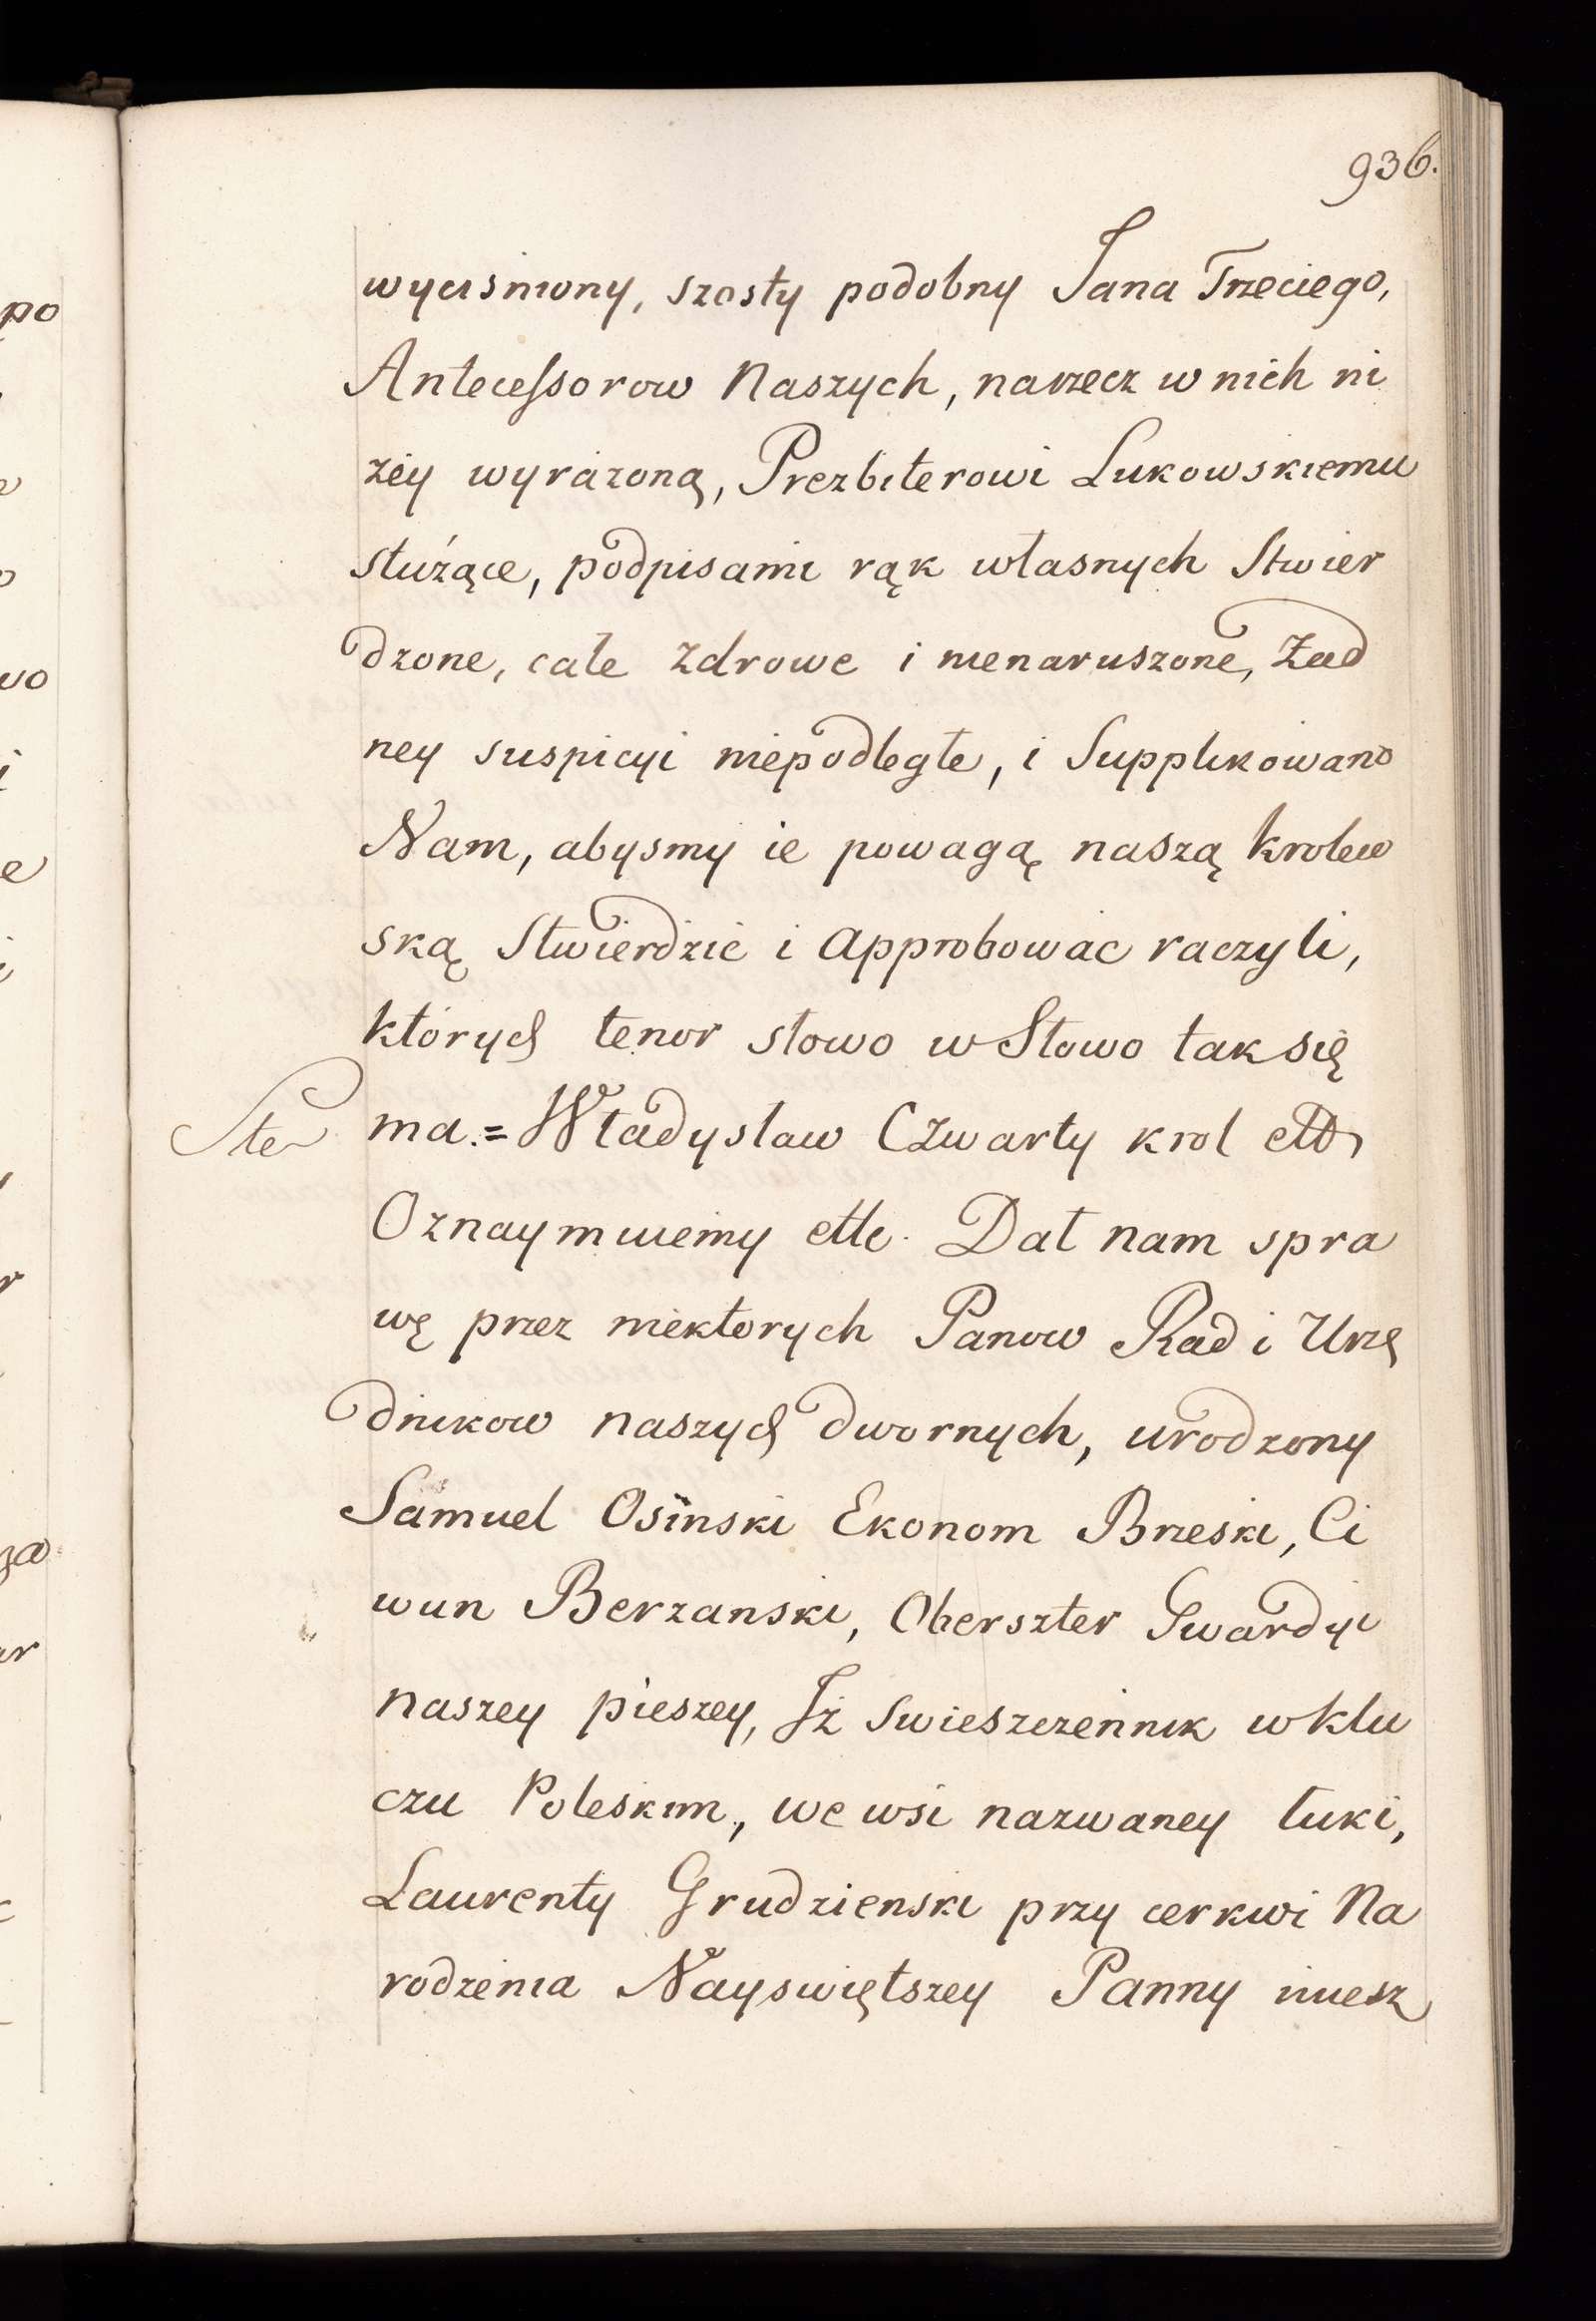 936.
wycisniony, szosty podobny Jana Trzeciego,
Antecessorow Naszych, narzecz w nich ni
zey wyrazoną, Prezbiterowi Lukowskiemu
służące, podpisami rąk własnych Stwier
dzone, całe zdrowe i nienaruszone, Żad
ney suspicyi niepodległe, i Supplikowano
Nam, abysmy ie powagą naszą krolew
ską Stwierdzić i approbować raczyli,
których tenor słowo w Słowo tak się
Ste
ma.= Władysław Czwarty krol ettc
Oznaymuiemy ettc. Dał nam spra
wę przez niektorych Panow Rad i Urzę
dnikow naszych dwornych, urodzony
Samuel Osinski Ekonom Brzeski, Ci
wun Berzanski, Oberszter Gwardyi
naszey pieszey, Iż swieszczennik w klu
czu Poleskim, we wsi nazwaney Łuki,
Laurenty Grudzienski przy cerkwi Na
rodzenia Nayswiętszey Panny miesz
po
wo
i
e
r
za